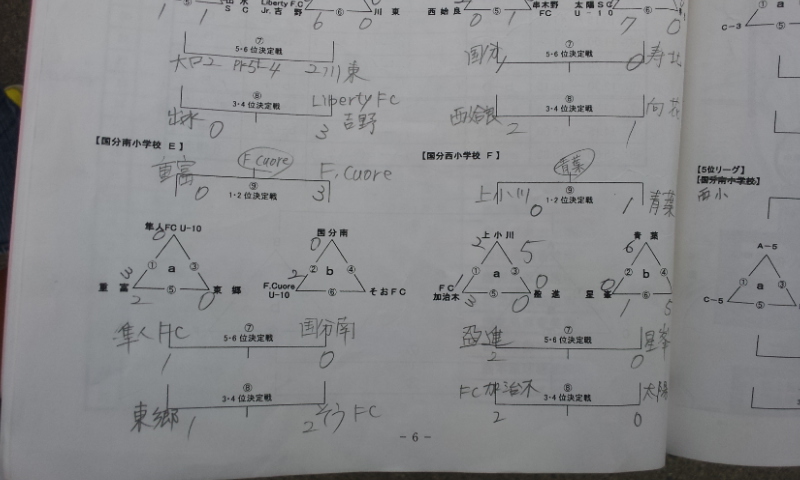 Liberty F.C
Jr.吉野
川東
6 0
西姶良
串木野
FC
太陽SC
U-10
0 1
7 0
a
C-3
⑦
5・6位決定戦
大口2 PK5-4 2川東
⑦
5・6位決定戦
国分 1 0 寿北
⑧
3・4位決定戦
出水 0 3 Liberty FC
吉野
⑧
3・4位決定戦
西姶良 2 1 向花
【国分南小学校 E】
F.Cuore
重富 0 3 F.Cuore
⑨
1・2位決定戦
【国分西小学校 F】
青葉
上小川 0 1 青葉
⑨
1・2位決定戦
【5位リーグ】
【国分南小学校】
西小
隼人FC U-10
0
① a ③
3
重富 ⑤ 東郷
2 0
国分南
0
② b ④
2
F.Cuore
U-10
⑥ そおFC
上小川
2 5
① a ③
FC
加治木
⑤
3 0
0
青葉
6
② b ④
0
星峯 ⑥
1 5
A-5
① a
C-5 ⑤
⑦
5・6位決定戦
隼人FC 1 0 国分南
⑦
5・6位決定戦
2 0 星峯
⑧
3・4位決定戦
東郷 1 2 そうFC
⑧
3・4位決定戦
FC加治木 2 0 太陽
- 6 -